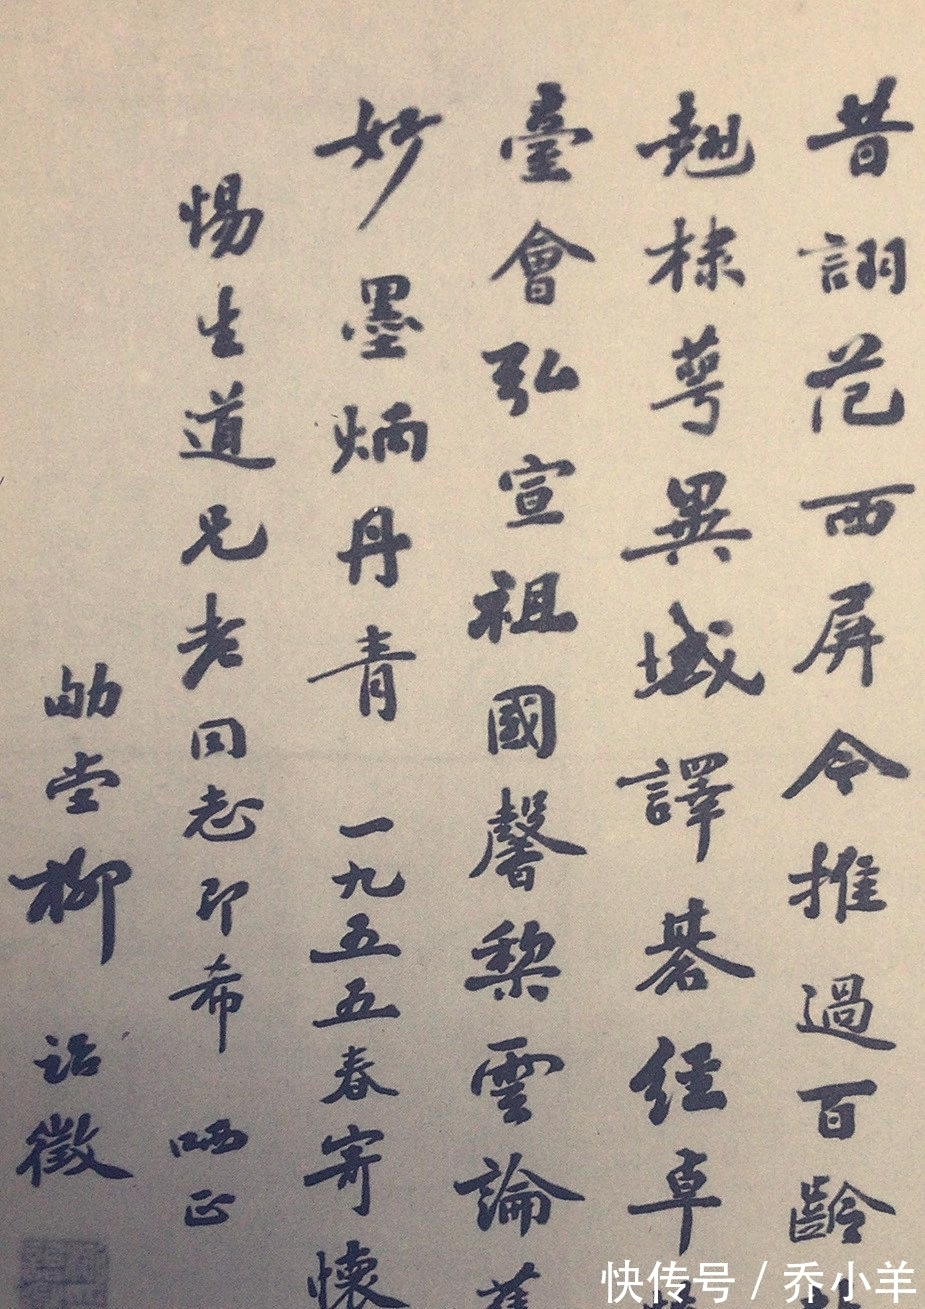 昔詡范西屏令推過百齡
趐棣萼異域譯棊經卓
臺會弘宣祖國馨梨雲論舊
妙墨炳丹青 一九五五春寄懷
惕生道兄老同志即希 哂正
劬堂柳詒徵
快传号 / 乔小羊